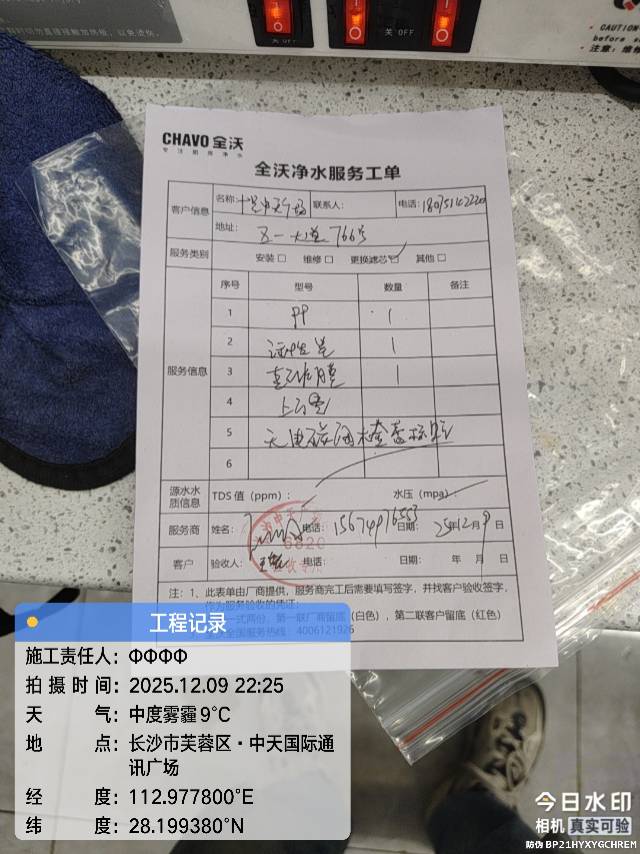 关 OFF
CAUTION
before
注意：维修
CHAVO 全沃
专注厨房净水
全沃净水服务工单
客户信息 名称： 联系人： 电话：
地址：五一大道766号
服务类别 安装□ 维修□ 更换滤芯□ 其他□
服务信息 序号 型号 数量 备注
1 PP 1
2 1
3 1
4
5
6
源水水质信息 TDS 值（ppm）： 水压（mpg）：
服务商 姓名： 电话：15674976553 日期：25年12月9日
客户 验收人： 电话： 日期： 年 月 日
注：1、此表单由厂商提供，服务商完工后需要填写签字，并找客户验收签字，
作为服务验收的凭证；
一式两份，第一联厂商留底（白色），第二联客户留底（红色）
全国服务热线：4006121926
工程记录
施工责任人：ΦΦΦΦ
拍摄时间：2025.12.09 22:25
天 气：中度雾霾 9℃
地 点：长沙市芙蓉区·中天国际通
讯广场
经 度：112.977800°E
纬 度：28.199380°N
今日水印
相机 真实可验
防伪 BP21HYXYGCHREM